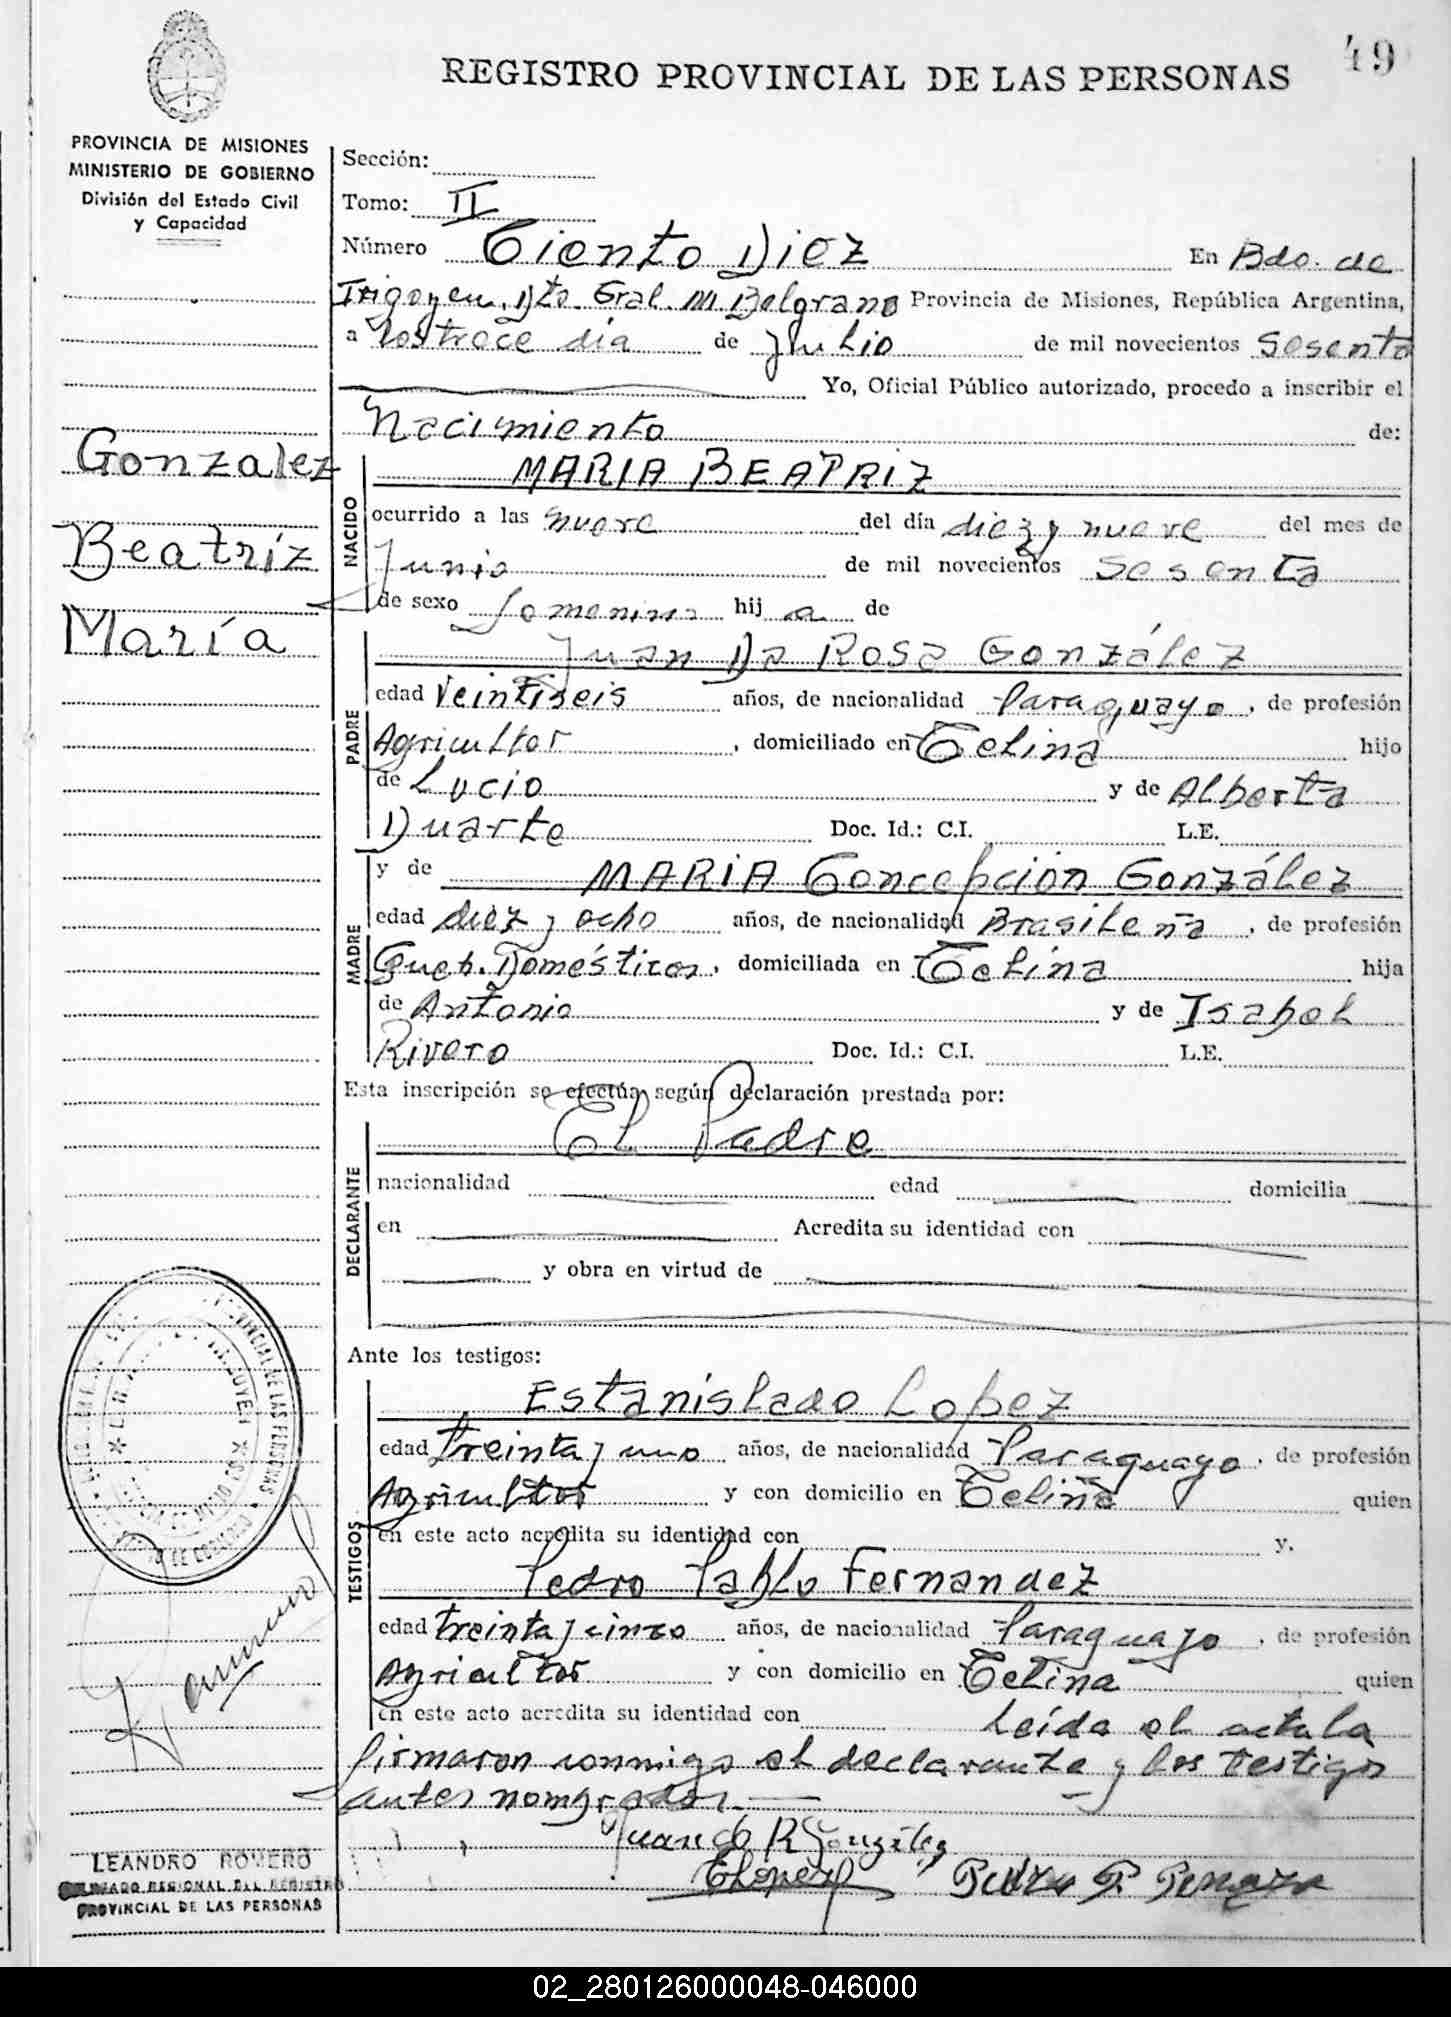 49
REGISTRO PROVINCIAL DE LAS PERSONAS
PROVINCIA DE MISIONES
MINISTERIO DE GOBIERNO
División del Estado Civil
y Capacidad
Gonzalez
Beatríz
María
Sección:
Tomo: II
Número Ciento Diez En Bdo. de
Irigoyen. Dto. Gral. M. Belgrano Provincia de Misiones, República Argentina,
a los trece dia de Julio de mil novecientos Sesenta
Yo, Oficial Público autorizado, procedo a inscribir el
Nacimiento de:
NACIDO
MARIA BEATRIZ
ocurrido a las nueve del día diez y nueve del mes de
Junio de mil novecientos Sesenta
de sexo femenino hij a de
PADRE
Juan Da Rosa González
edad Veintiseis años, de nacionalidad Paraguayo, de profesión
Agricultor, domiciliado en hijo
de Lucio y de Alberta
Duarte Doc. Id.: C.I. L.E.
MADRE
y de MARIA Concepción González
edad diez y ocho años, de nacionalidad Brasileña, de profesión
Domésticos, domiciliada en hija
de Antonio y de Isabel
Rivero Doc. Id.: C.I. L.E.
Esta inscripción se efectúa según declaración prestada por:
DECLARANTE
El Padre
nacionalidad edad domicilia
en Acredita su identidad con
y obra en virtud de
Ante los testigos:
TESTIGOS
Estanislado Lopez
edad treinta y uno años, de nacionalidad Paraguayo, de profesión
Agricultor y con domicilio en quien
en este acto acredita su identidad con y,
Pedro Pablo Fernandez
edad treinta y cinco años, de nacionalidad Paraguayo, de profesión
Agricultor y con domicilio en quien
en este acto acredita su identidad con Leída el acta la
firmaron conmigo el declarante y los testigos
antes nombrados.
Juan D R González
ELopez
Pedro P.
LEANDRO ROMERO
DELEGADO REGIONAL DEL REGISTRO
PROVINCIAL DE LAS PERSONAS
02_280126000048-046000